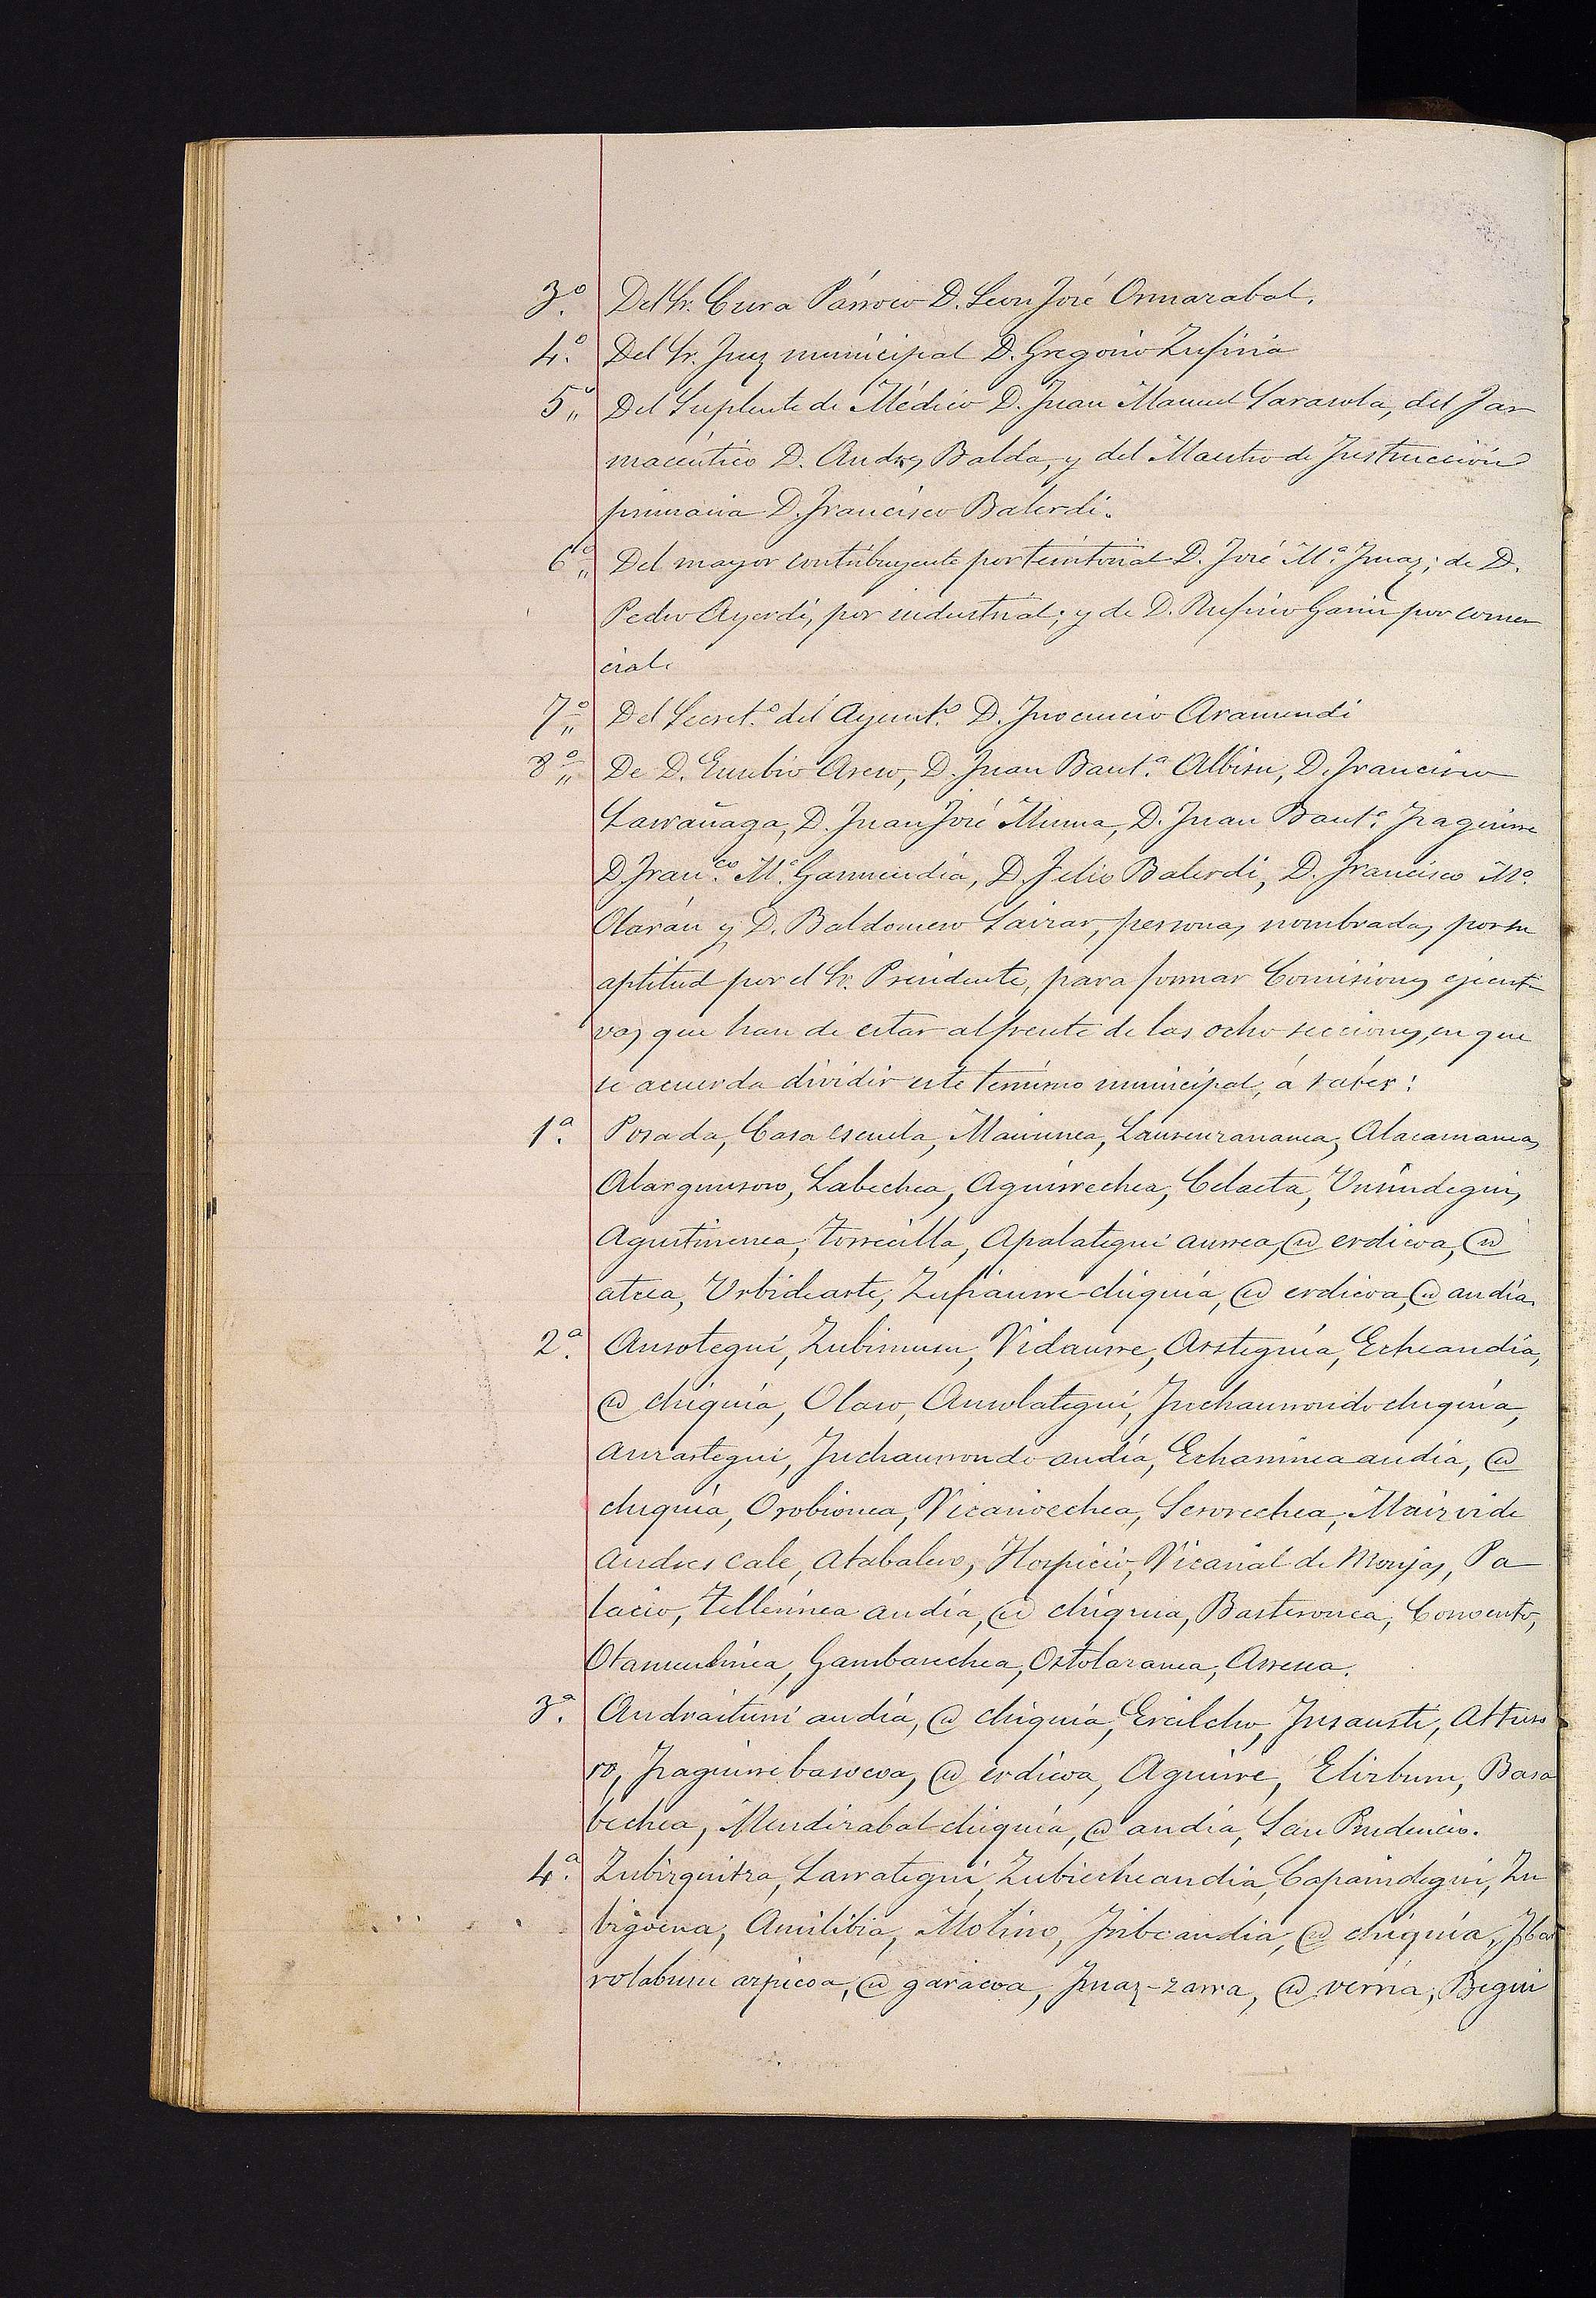 3.º Del Sr. Cura Párroco D. Leon José Ormazabal.
4.º Del Sr. Juez municipal D. Gregorio Zufiria
5.º Del Suplente de Médico D. Juan Manuel Sarasola, del Far
macéutico D. Andres Balda, y del Maestro de Instrucción
primaria D. Francisco Balerdi.
6.º Del mayor contribuyente por territorial D. José M.ª Imaz; de D.
Pedro Ayerdi, por industrial; y de D. Rufino Garin por comer
cial.
7.º Del Secret.º del Ayunt.º D. Inocencio Aramendi
8.º De D. Eusebio Areso, D. Juan Baut.ª Albisu, D. Francisco
Larrañaga, D. Juan José Munua, D. Juan Baut.ª Izaguirre
D. Fran.co M.ª Garmendia, D. Felix Balerdi, D. Francisco M.ª
Olarán y D. Baldomero Sairar, personas nombradas por su
aptitud por el Sr. Presidente, para formar Comisiones ejecuti
vas que han de estar al frente de las ocho secciones, en que
se acuerda dividir este término municipal, á saber:
1.ª Posada, Casa escuela, Lausenzananea, Alacamanea,
Labechea, Aguirrechea, Celaeta,
Agustinenea, Torrecilla, Apalategui aurrea, @ erdicoa, @
atcea, Urbidearte, Zufiaurre-chiquia, @ erdicoa, @ andia,
2.ª Ausotegui, Zubimusu, Vidaurre, Arsteguia, Echeandia,
@ chiquia, Olaso, Ansolategui, Inchaurrondo chiquia,
Aurrastegui, Inchaurrondo andia, Echaninea andia, @
chiquia, Orobionea, Vicarioechea, Serorechea, Maizvide
Andres cale, Atabalero, Hospicio, Vicarial de Monjas, Pa
lacio, Tellerinea andia, @ chiquia, Basteronea, Convento,
Gambarechea, Ostolazanea, Arresea.
3.ª Andraiturri andia, @ chiquia, Ercilcho, Insausti, Attuso
ro, Izaguirre basocoa, @ erdicoa, Aguirre, Elizburu, Basa
bechea, Mendizabal chiquia, @ andia, San Prudencio.
4.ª Larrategui, Zubiecheandia, Capaindegui, Zu
bigoena, Amilibia, Molino, Iribeandia, @ chiquia, Ibar
rolaburu azpicoa, @ garaicoa, Imaz-zarra, @ verria, Begui